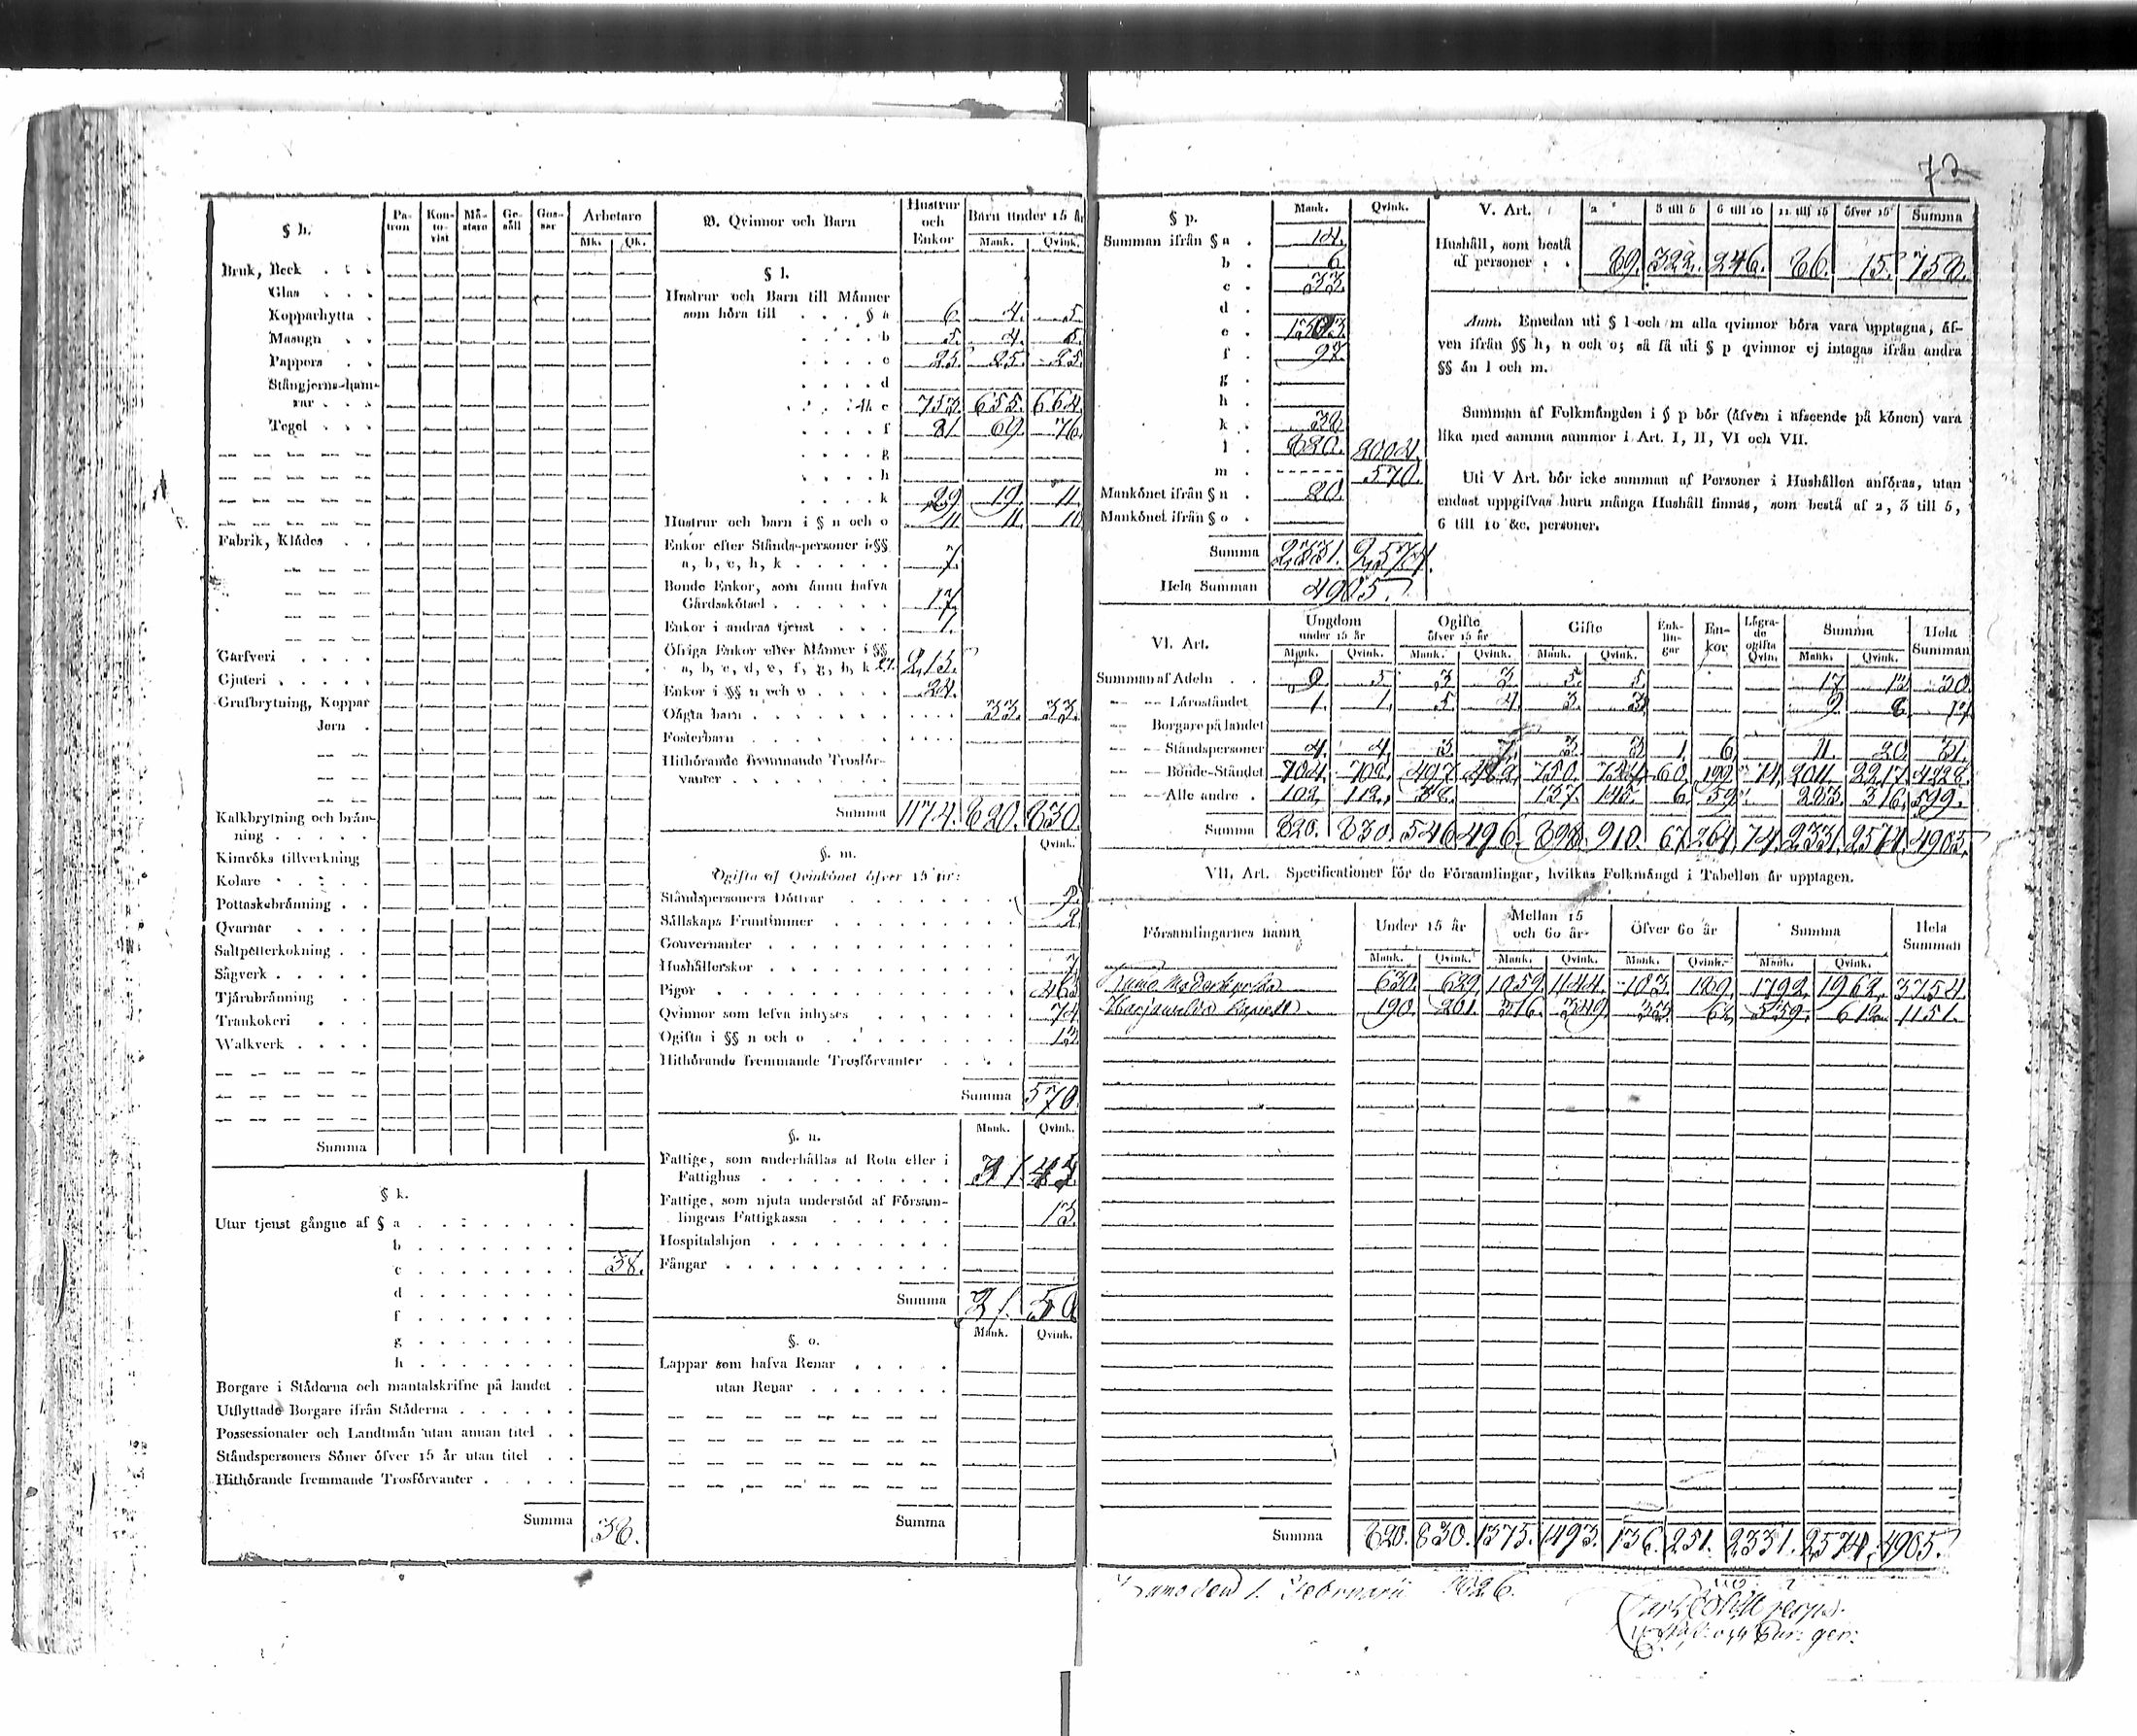 72
§ h.
Pa- tron
Kon- to- rist
Må- stare
Ge- säll
Gos- sar
Arbetare
Mk. Qk.
Bruk, Beck
Glas
Kopparhytta
Masugn
Pappers
Stångjerns-ham-
rar
Tegel
Fabrik, Klådes
Garfveri
Gjuteri
Grufbrytning, Koppar
Jern
Kalkbrytning och brän-
ning
Kimröks tillverkning
Kolare
Pottaskebränning
Qvarnar
Saltpetterkokning
Sågverk
Tjärubränning
Trankokeri
Walkverk
Summa
§ k.
Utur tjenst gångne af § a
b
c 38.
d
f
g
h
Borgare i Städerna och mantalskrifne på landet
Utflyttade Borgare ifrån Städerna
Possessionater och Landtmän utan annan titel
Ståndspersoners Söner öfver 15 år utan titel
Hithörande fremmande Trosförvanter
Summa 38.
Qvinnor och Barn
Hustrur och Enkor
Barn under 15 år
Mank. Qvink.
§ l.
Hustrur och Barn till Männer
som höra till § a 6. 4. 5.
b 5. 4.
c 25. 25. 25.
d
e 753. 655. 664.
f 81. 69. 76.
g
h
k 29. 19. 11.
Hustrur och barn i § n och o 11. 11.
Enkor efter Stånds-personer i §§
a, b, c, h, k 7.
Bonde Enkor, som ännu hafva
Gårdsskötsel 17.
Enkor i andras tjenst 1.
Öfriga Enkor efter Männer i §§
a, b, c, d, e, f, g, h, k 215.
Enkor i §§ n och o 24.
Oägta barn 33. 33.
Fosterbarn
Hithörande fremmande Trosför-
vanter
Summa 1174. 820. 830.
§. m.
Qvink.
Ogifta af Qvinkönet öfver 15 år:
Ståndspersoners Döttrar
Sällskaps Fruntimmer 2.
Gouvernanter
Hushållerskor 7.
Pigor
Qvinnor som lefva inhyses 74
Ogifta i §§ n och o
Hithörande fremmande Trosförvanter
Summa 570
§. n.
Mank. Qvink.
Fattige, som underhållas af Rota eller i
Fattighus
Fattige, som njuta understöd af Försam-
lingens Fattigkassa 13.
Hospitalshjon
Fångar
Summa 21. 50
§. o.
Mank. Qvink.
Lappar som hafva Renar
utan Renar
Summa
§ p.
Mank. Qvink.
Summan ifrån § a 14.
b 6.
c 33.
d
e
f 97.
g
h
k 38.
l 820. 2004.
m 570.
Mankönet ifrån § n
Mankönet ifrån § o
Summa 2331. 2574.
Hela Summan 4905.
V. Art.
2 3 till 5 6 till 10 11 till 15 öfver 15 Summa
Hushåll, som bestå
af personer 89. 322. 246. 86. 15. 758.
Anm. Emedan uti § l och m alla qvinnor böra vara upptagna, äf-
ven ifrån §§ h, n och o; så få uti § p qvinnor ej intagas ifrån andra
§§ än l och m.
Summan af Folkmängden i § p bör (äfven i afseende på könen) vara
lika med samma summor i Art. I, II, VI och VII.
Uti V Art. bör icke summan af Personer i Hushållen anföras, utan
endast uppgifvas huru många Hushåll finnas, som bestå af 2, 3 till 5,
6 till 10 &c. personer.
VI. Art.
Ungdom under 15 år
Ogifte öfver 15 år
Gifte
Enk- lin- gar
En- kor
Lägra- de ogifta Qvin.
Summa
Hela Summan
Mank. Qvink. Mank. Qvink. Mank. Qvink. Mank. Qvink.
Summan af Adeln 9. 5. 3. 3. 5. 5. 17. 13. 30.
Läroståndet 1. 1. 5. 4. 3. 3. 9. 8. 17.
Borgare på landet
Ståndspersoner 4. 4. 3. 7. 3. 3. 1. 6. 11. 20. 31.
Bonde-Ståndet 704. 708. 497. 482. 750. 754. 60. 199. 74. 2011. 2217. 4228.
Alle andre 102. 112. 38. 137. 145. 6. 59. 283. 316. 599.
Summa 820. 830. 546. 496. 898. 910. 67. 264. 74. 2331. 2574. 4905.
VII. Art. Specificationer för de Församlingar, hvilkas Folkmängd i Tabellen är upptagen.
Församlingarnes namn
Under 15 år
Mellan 15 och 60 år
Öfver 60 år
Summa
Hela Summan
Mank. Qvink. Mank. Qvink. Mank. Qvink. Mank. Qvink.
630. 629. 1059. 1144. 103. 189. 1792. 1962. 3754.
Harjavalda Capell 190. 201. 316. 349. 33. 62. 539. 612. 1151.
Summa 820. 830. 1375. 1493. 136. 251. 2331. 2574. 4905.
den 1. Februarii 1826.